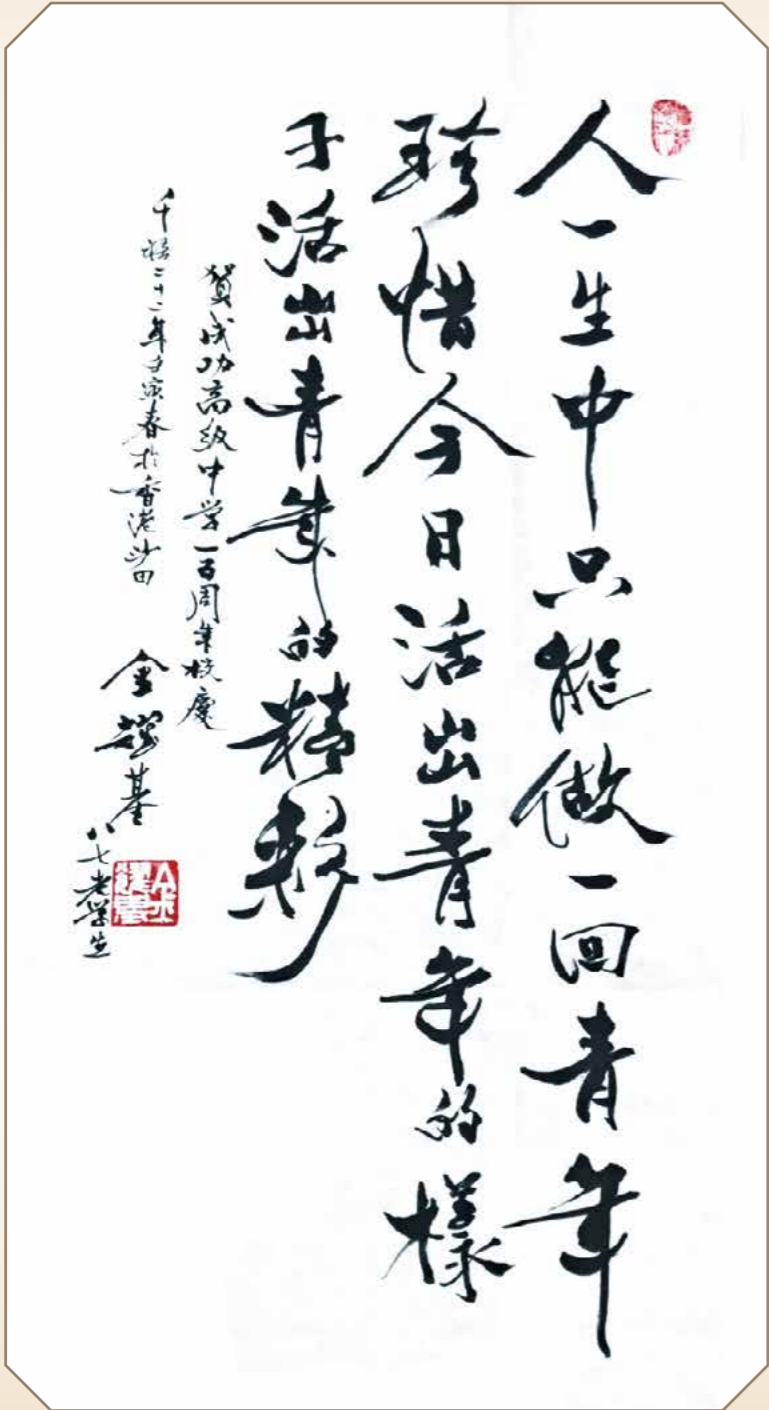 人一生中只能做一回青年
珍惜今日活出青年的樣
子活出青年的精彩
賀成功高級中学一百周年校慶
千禧二十二年壬寅春於香港沙田
金耀基
八七老學生